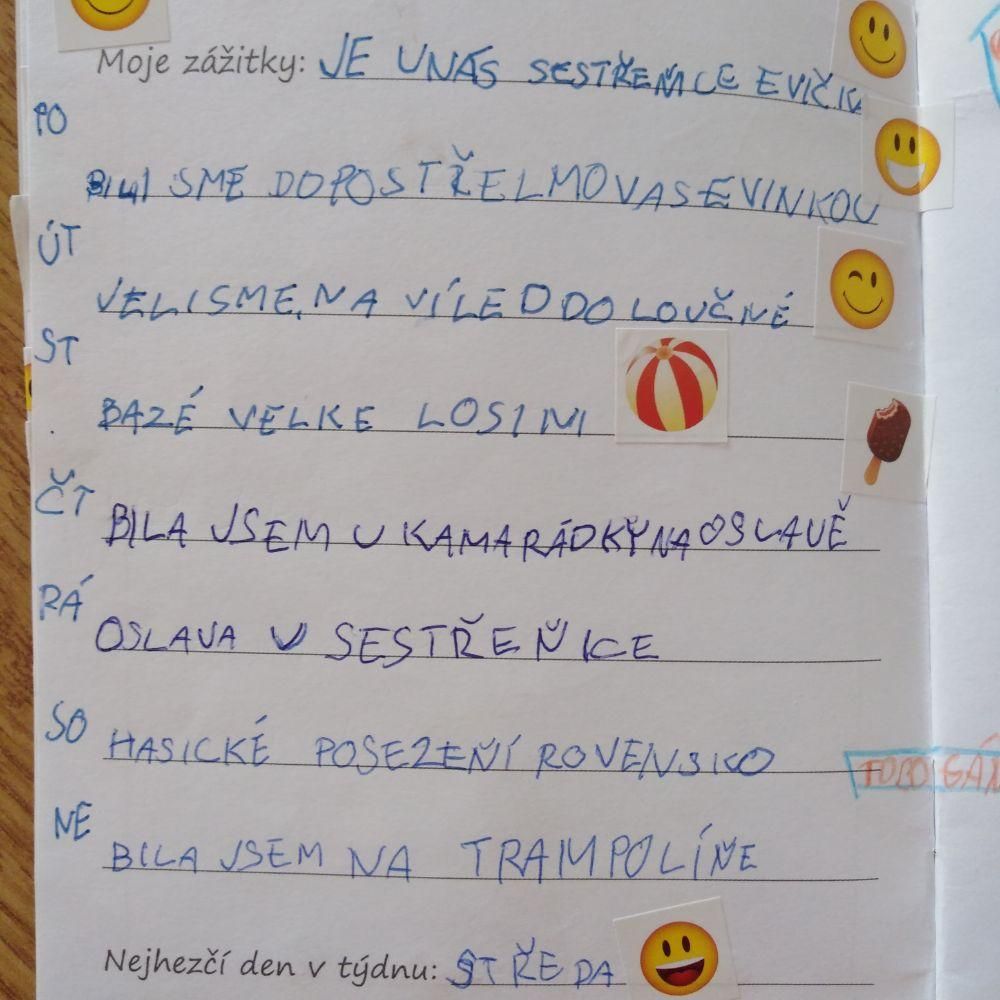 Moje zážitky: JE UNÁS SESTŘEŇICE EVIČK
PO
BILI SME DOPOSTŘELMOVASEVINKOU
ÚT
VELISME NA VÍLED DO LOUČNÉ
ST
BAZÉ VELKE LOSINI
ČT
BILA JSEM U KAMARÁDKY NA OSLAVĚ
RÁ
OSLAVA U SESTŘEŇICE
SO
HASICKÉ POSEZEŇÍ ROVENSKO
NE
BILA JSEM NA TRAMPOLÍŇE
TOBOGÁN
Nejhezčí den v týdnu: STŘEDA